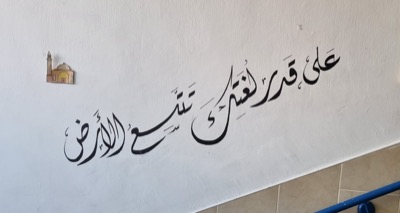 عَلى قَدر لغَتِكَ تَتَّسِع الأَرض